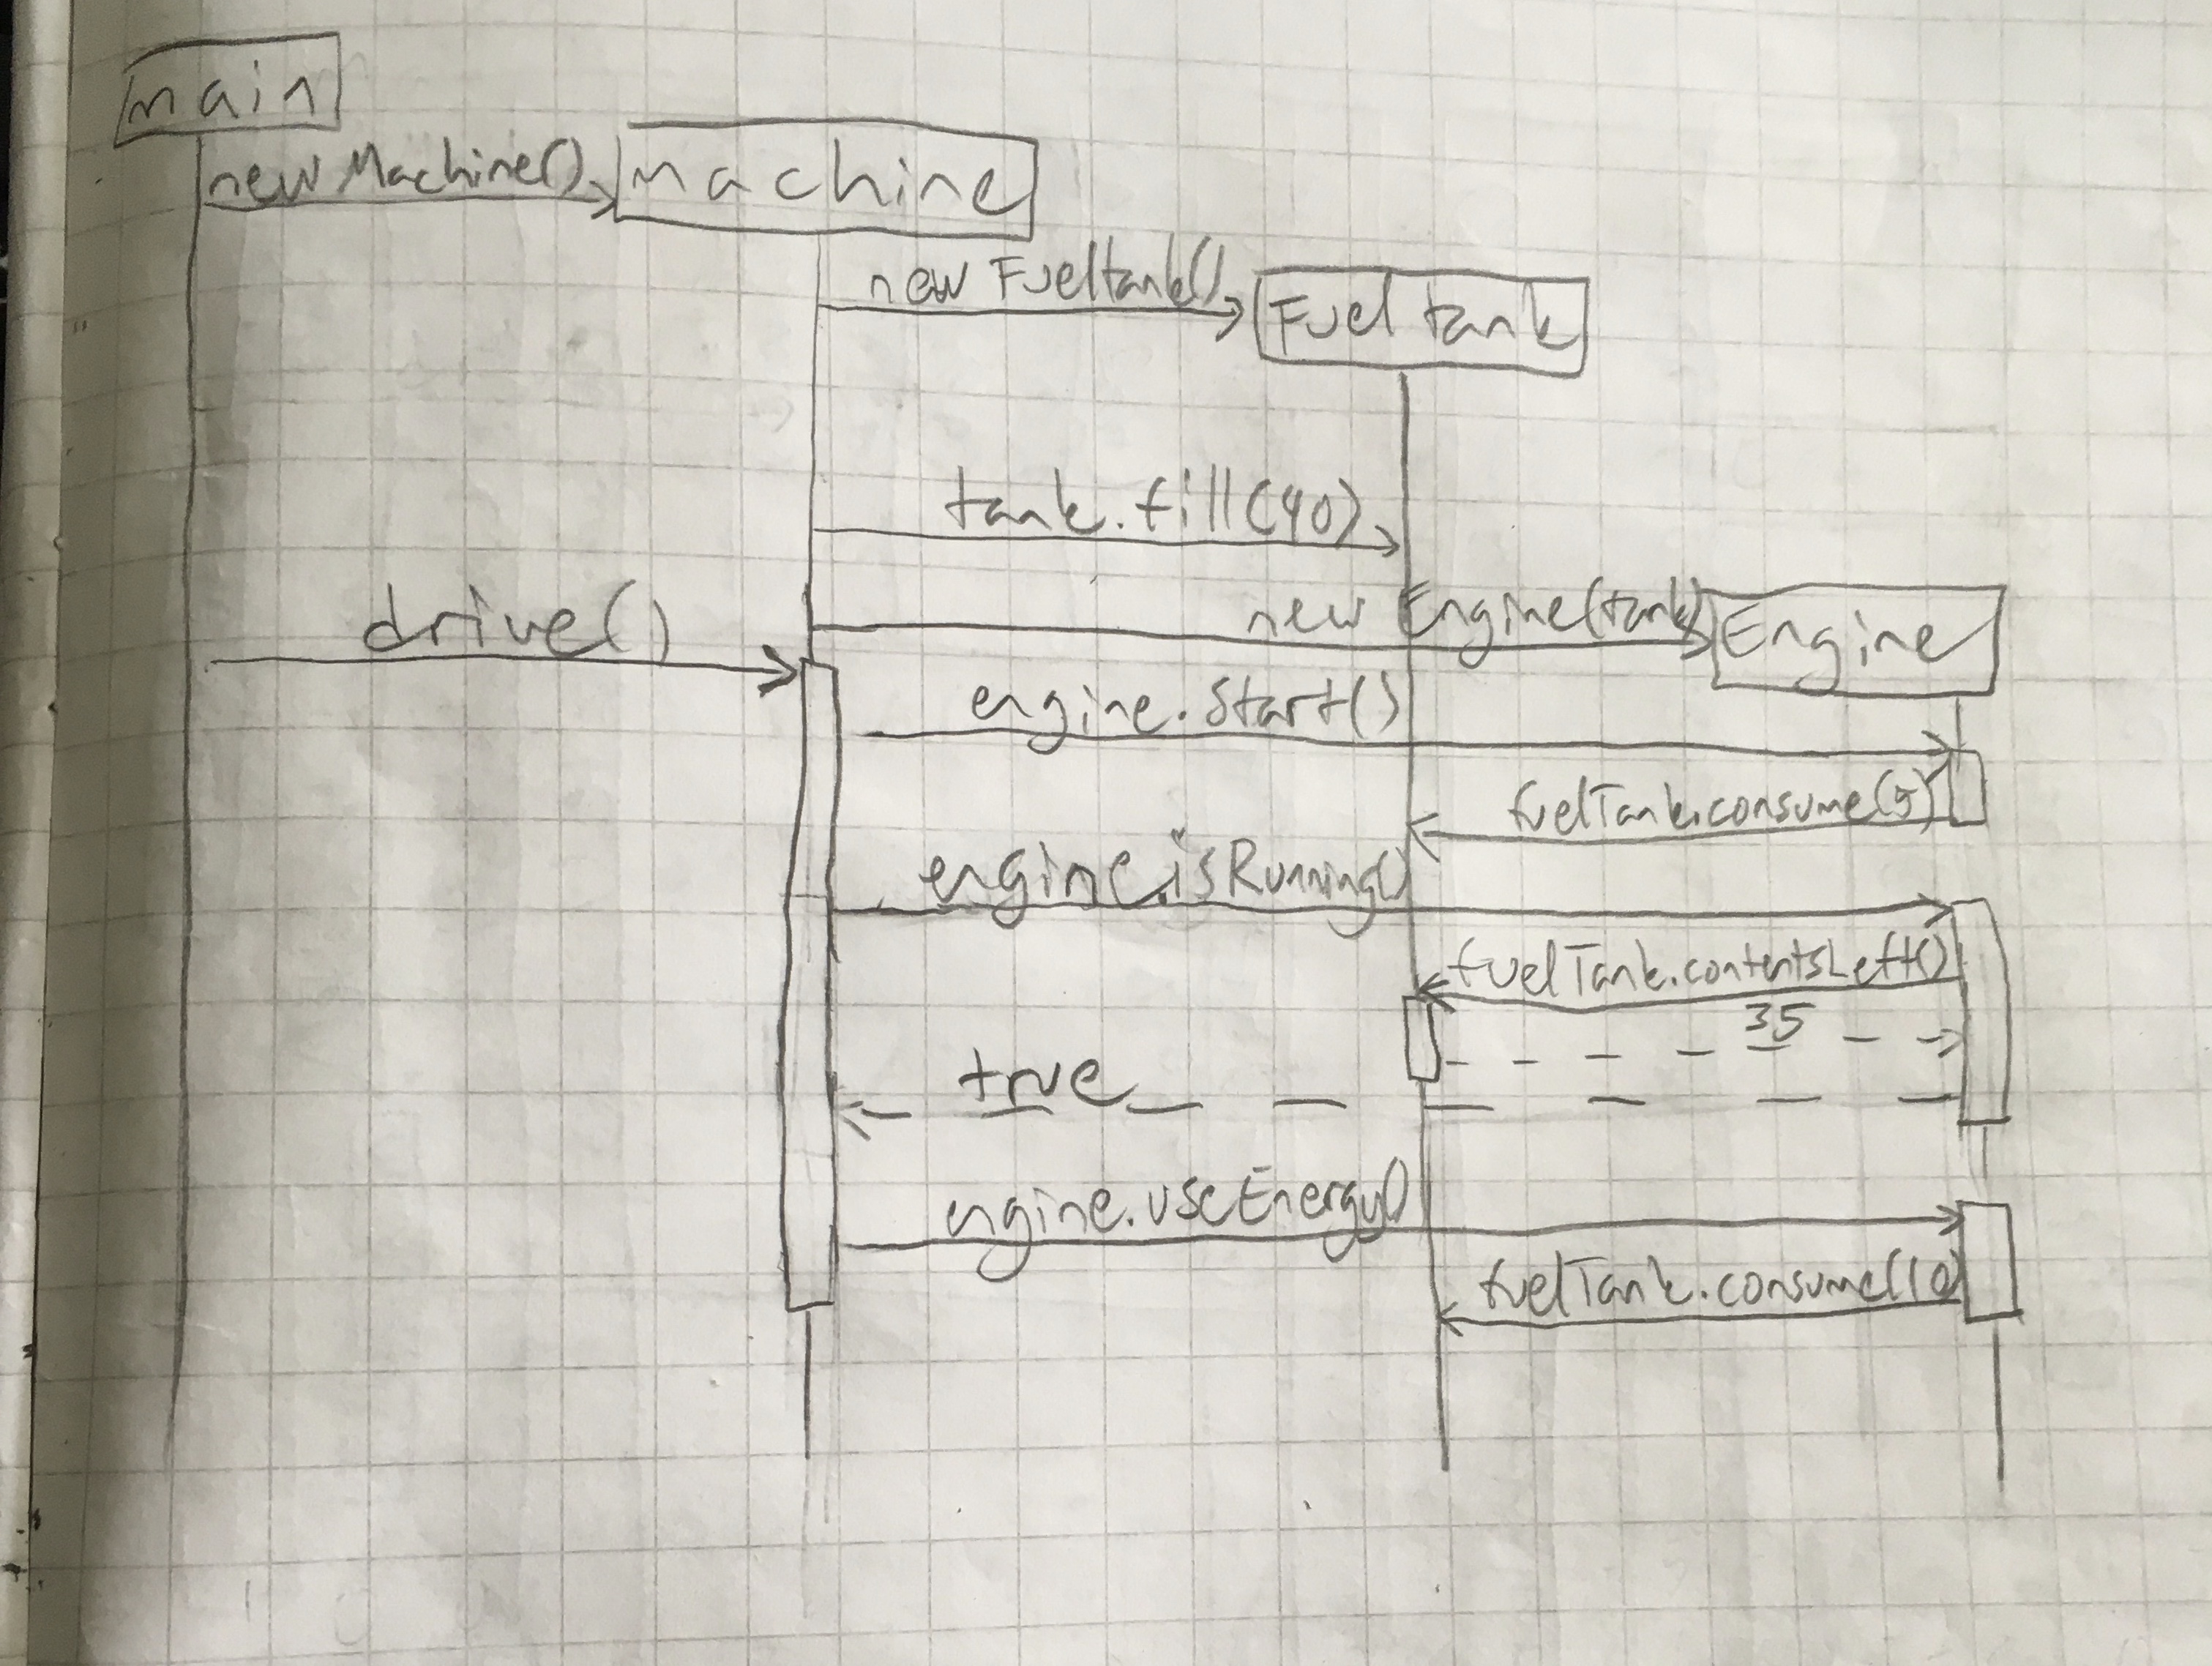 main
new Machine()
machine
new Fueltank()
Fuel tank
tank.fill(40)
new Engine(tank)
Engine
drive()
engine.start()
fuelTank.consume(5)
engine.isRunning()
fuelTank.contentsLeft()
35
true
engine.useEnergy()
fuelTank.consume(10